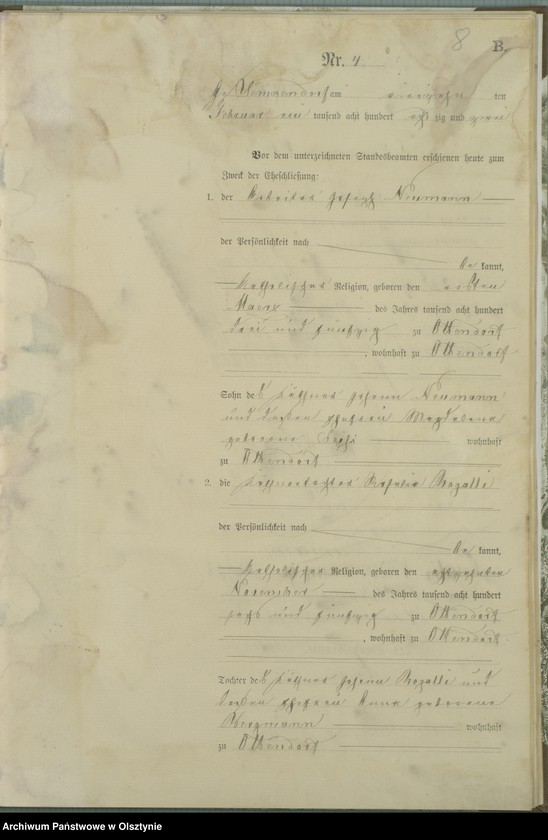 8 B.
Nr. 4
am vierzehn ten
Februar ein tausend acht hundert acht zig und zwei
Vor dem unterzeichneten Standesbeamten erschienen heute zum
Zweck der Eheschließung:
1. der Arbeiter Joseph Neumann
der Persönlichkeit nach
be kannt,
katholischer Religion, geboren den ersten
Maerz des Jahres tausend acht hundert
drei und fünfzig zu Ottendorf
, wohnhaft zu Ottendorf
Sohn des Käthners Johann Neumann
und dessen Ehefrau Magdalena
geborene wohnhaft
zu Ottendorf
2. die Käthnertochter Rosalie Rogalli
der Persönlichkeit nach
be kannt,
katholischer Religion, geboren den achtzehnten
November des Jahres tausend acht hundert
sechs und fünfzig zu Ottendorf
, wohnhaft zu Ottendorf
Tochter des Käthners Johann Rogalli und
dessen Ehefrau Anna geborene
Bergmann wohnhaft
zu Ottendorf
Archiwum Państwowe w Olsztynie